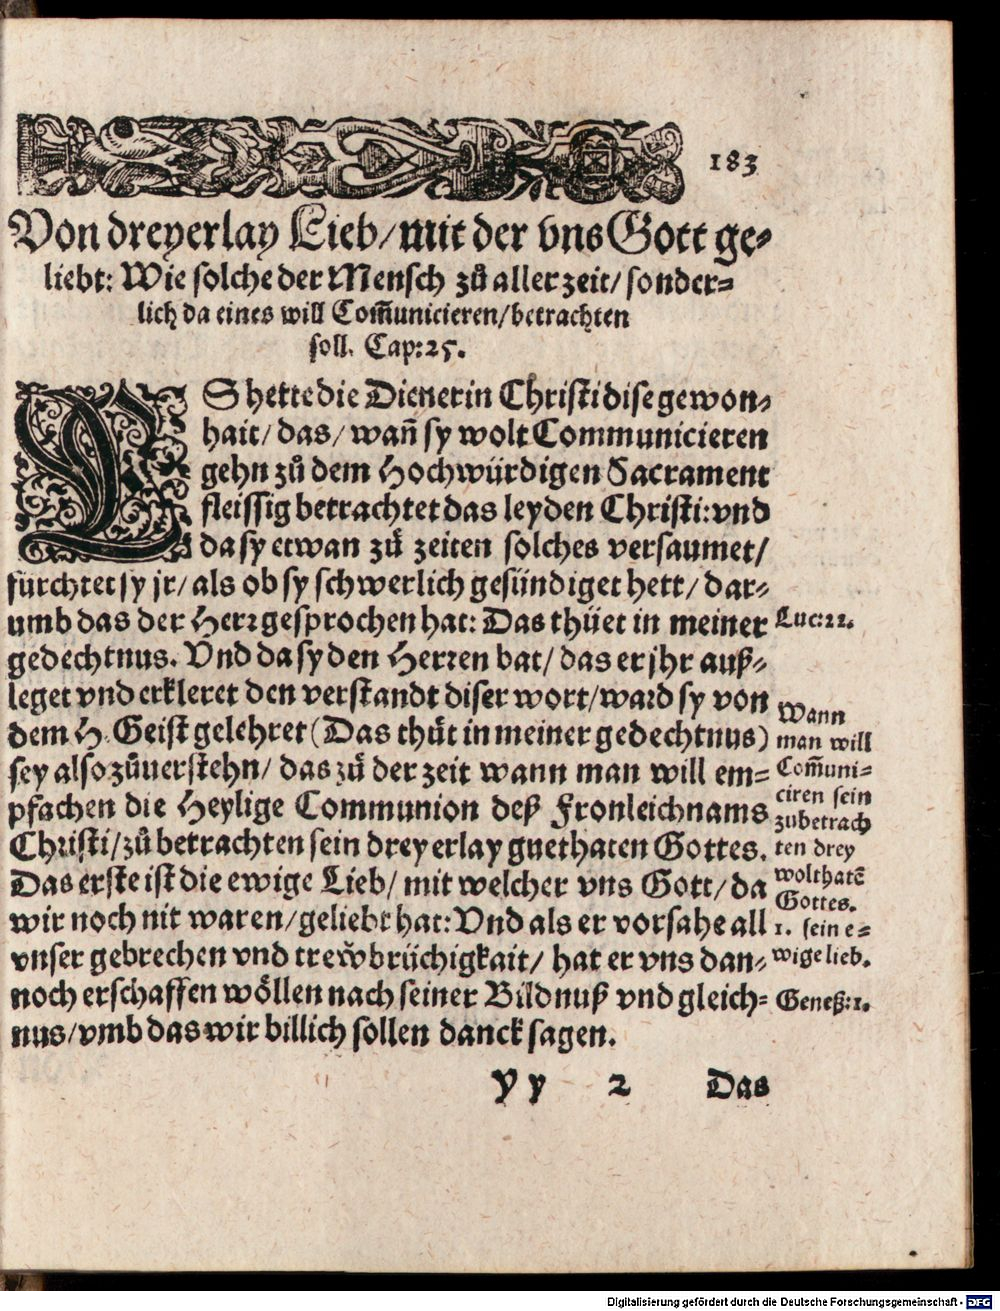 183
Von dreyerlay Lieb/mit der vns Gott ge-
liebt: Wie solche der Mensch zů aller zeit/sonder-
lich da eines will Com̃unicieren/betrachten
soll. Cap:25.
ES hette die Dienerin Christi dise gewon-
hait/das/wañ sy wolt Communicieren
gehn zů dem Hochwürdigen Sacrament
fleissig betrachtet das leyden Christi:vnd
da sy etwan zů zeiten solches versaumet/
fürchtet sy jr/als ob sy schwerlich gesündiget hett/dar-
umb das der Herr gesprochen hat: Das thüet in meiner
gedechtnus. Vnd da sy den Herren bat/das er jhr auß-
leget vnd erkleret den verstandt diser wort/ward sy von
dem H. Geist gelehret (Das thůt in meiner gedechtnus)
sey also zůuerstehn/das zů der zeit wann man will em-
pfachen die Heylige Communion deß Fronleichnams
Christi/zů betrachten sein dreyerlay guethaten Gottes.
Das erste ist die ewige Lieb/mit welcher vns Gott/da
wir noch nit waren/geliebt hat: Vnd als er vorsahe all
vnser gebrechen vnd trew̌brüchigkait/hat er vns dan-
noch erschaffen wöllen nach seiner Bildnuß vnd gleich-
nus/vmb das wir billich sollen danck sagen.
Luc:22.
Wann
man will
Com̃uni-
ciren sein
zubetrach
ten drey
wolthatẽ
Gottes.
1. sein e-
wige lieb.
Geneß:1.
Yy 2 Das
Digitalisierung gefördert durch die Deutsche Forschungsgemeinschaft - DFG